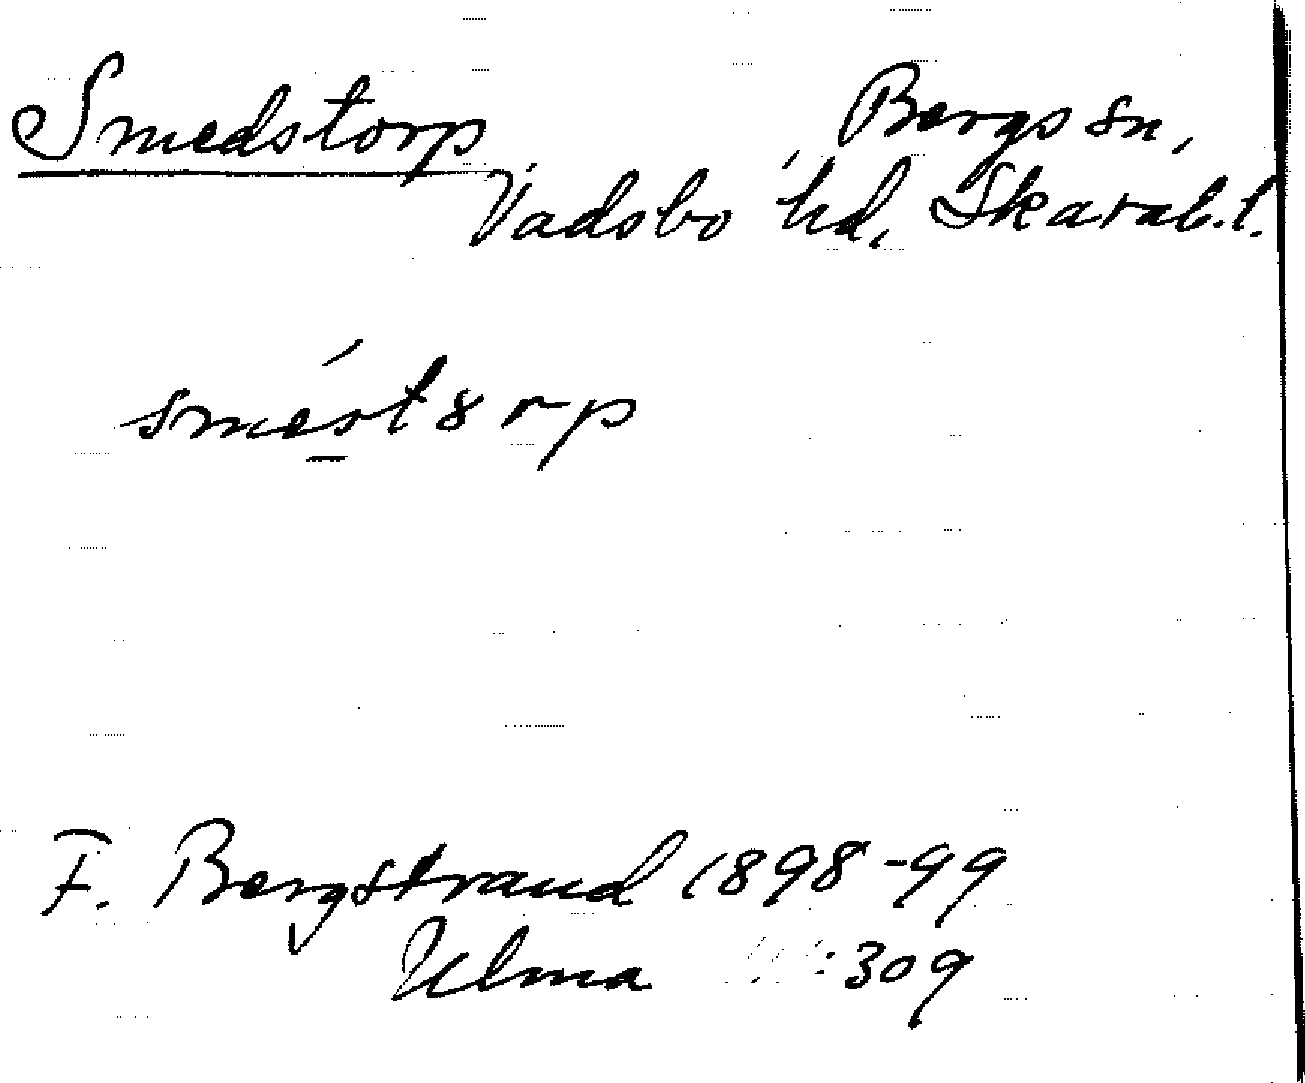 Smedstorp Bergs sn,
Vadsbo hd, Skarab.l.
sméstȣrp
F. Bergstrand 1898-99
Ulma :309